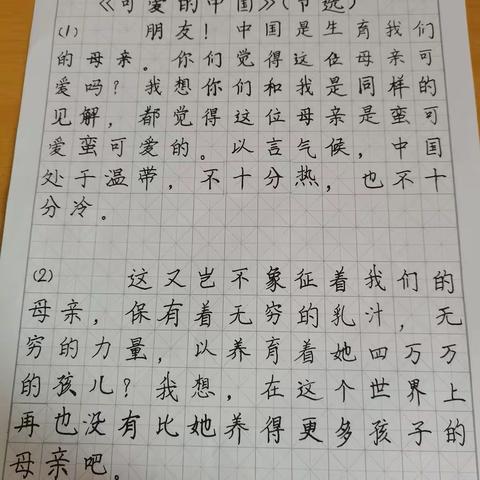 《可爱的中国》(节选)
(1) 朋友！中国是生育我们
的母亲。你们觉得这位母亲可
爱吗？我想你们和我是同样的
见解，都觉得这位母亲是蛮可
爱蛮可爱的。以言气候，中国
处于温带，不十分热，也不十
分冷。
(2) 这又岂不象征着我们的
母亲，保有着无穷的乳汁，无
穷的力量，以养育着她四万万
的孩儿？我想，在这个世界上
再也没有比她养得更多孩子的
母亲吧。